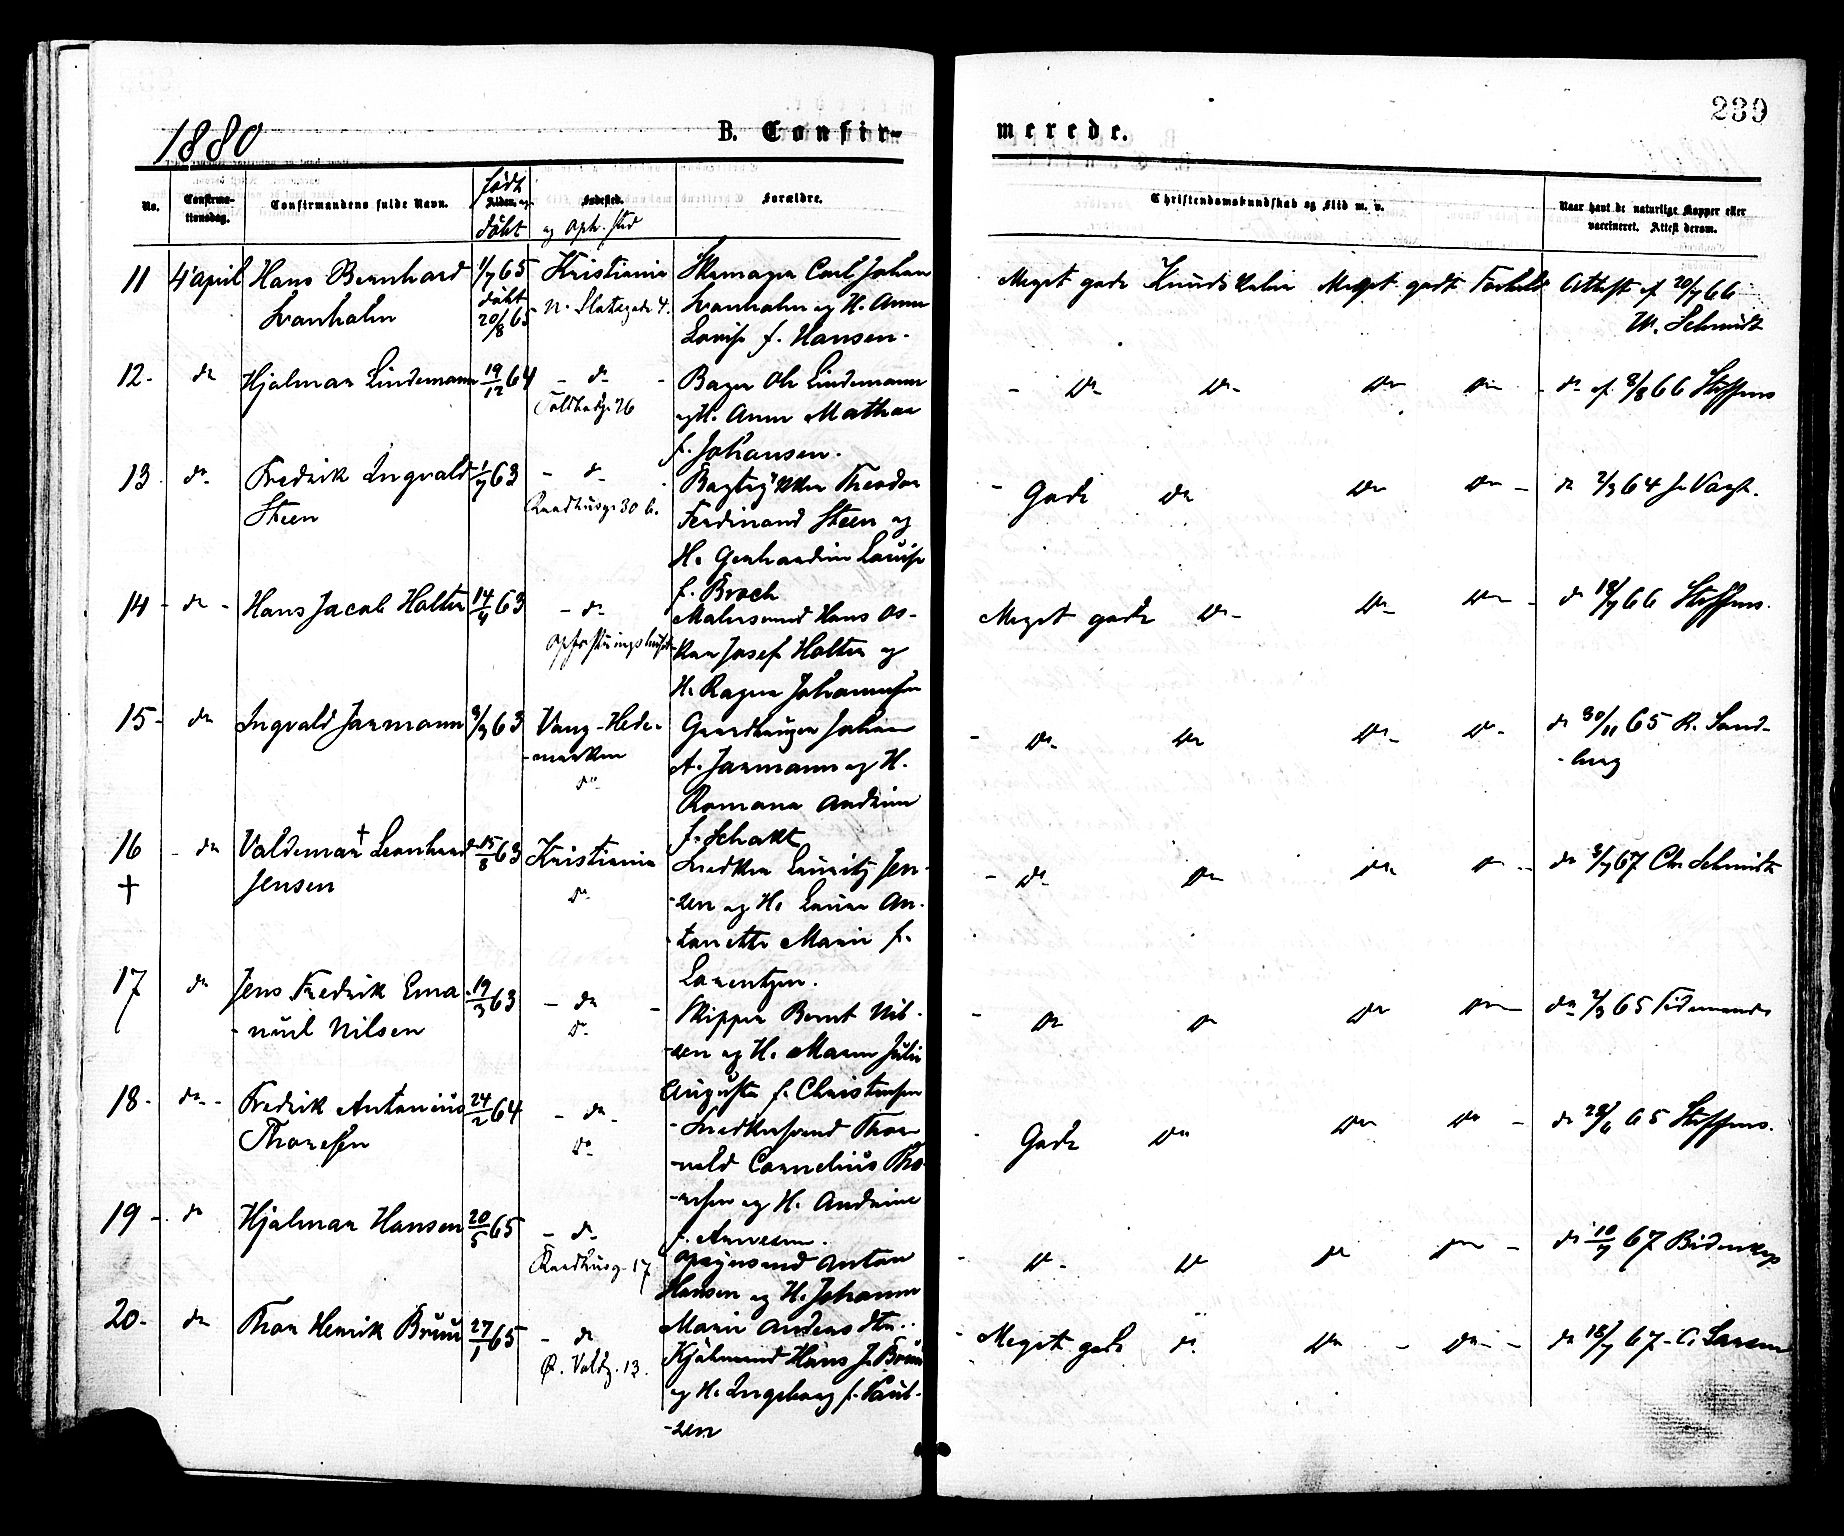 1880
B. Confir-
merede.
239
No.
Confirma-
tionsdag.
Confirmandens fulde Navn.
født
Alder. og
døbt
Fødested.
og Oph. sted
Forældre.
Christendomskundskab og Flid m. v.
Naar havt de naturlige Kopper eller
vaccineret. Attest derom.
11 4 april Hans Bernhard 1/7 65 Kristiania Carl Johan Meget gode Kundskaber Meget godt Forhold Attest af 20/7 66
Svanholm døbt 20/8 65 Svanholm og H. Anna W. Schmidt
Lovise f. Hansen.
12- do Hjalmar Lindemann 19/12 64 - do - Bager Ole Lindemann - Do Do Do Do - do af 8/8 66 Steffens
Toldbodg. 26 og H. Anna Mathea
f. Johansen.
13 do Fredrik Ingvald 1/7 63 - do - Bogtrykker Theodor - Gode do Do Do - do 2/3 64 J. Vogt.
Steen Raadhusg. 30 b. Ferdinand Steen og
H. Gerhardine Lovise
f. Broch
14 - do - Hans Jacob Holter 14/4 63 - do Malersvend Hans Os- Meget gode Do Do Do - do 18/7 66 Steffens.
kar Josef Holter og
H. Ragna Johannesen
15- do Ingvald Jarmann 3/3 63 Vang-Hede- Gaardbruger Johan - Do Do Do Do - do 30/11 65 R. Sand-
-marken A. Jarmann og H. -berg
do Romana Andrine
f. Schakt
16 - do Valdemar † Leonhard 15/8 63 Kristiania Snedker Lauritz Jen- - Do Do Do Do - do 3/7 67 Chr. Schmidt
† Jensen do -sen og H. Laura An-
-tonette Marie f.
Lorentzen.
17 do Jens Fredrik Ema- 19/3 63 - do - Skipper Bernt Nil- - Do Do Do Do do 2/3 65 Tidemands
-nuel Nilsen do -sen og H. Maren Julie
Augusta f. Christensen
18- do - Fredrik Antonius 24/2 64 - do - Snedkersvend Thor- - Gode Do Do Do - do 28/6 65 Steffens.
Thoresen do -vald Cornelius Tho-
-resen og H. Andrine
f. Arnesen.
19 - do Hjalmar Hansen 20/5 65 - do Anton - Do Do Do Do - do 10/7 67 Bidenkap
Raadhusg. 17 Hansen og H. Johanne
Marie
20- do Thor Henrik Bruun 27/1 65 - do Hans J. Bruun - Meget gode do Do - Do - do 18/7 67 - C. Larsen
Ø. Voldg. 13. og H. Ingeborg f. Paul-
-sen